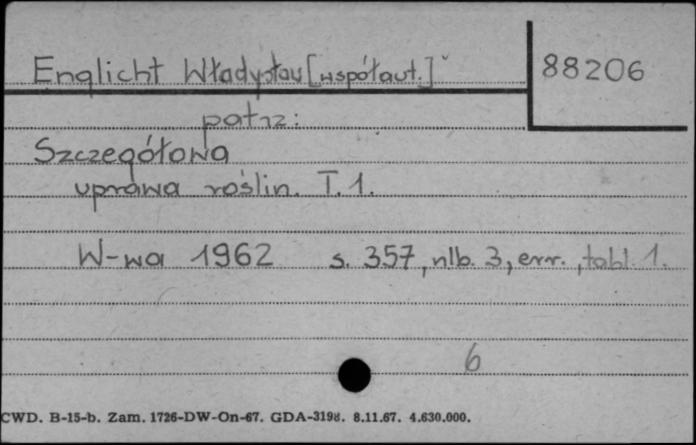 Englicht Władysław [współaut.]
88206
patrz:
Szczegółowa
uprawa roślin. T. 1.
W-wa 1962 s. 357, nlb. 3, err., tabl. 1.
6
CWD. B-15-b. Zam. 1726-DW-On-67. GDA-3198. 8.11.67. 4.630.000.